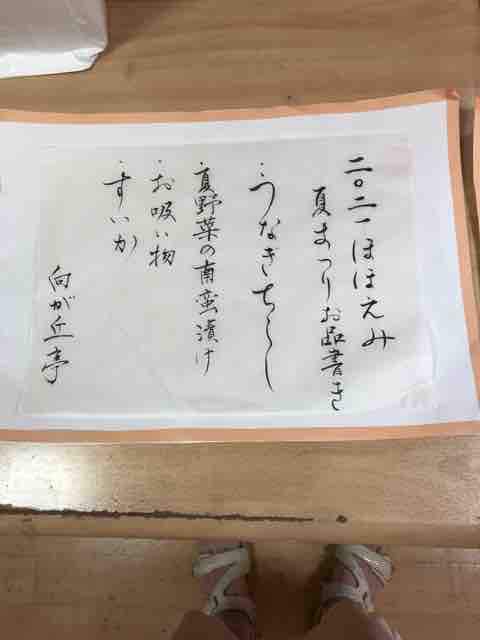 二〇二一ほほえみ
夏まつりお品書き
・うなぎちらし
・夏野菜の南蛮漬け
・お吸い物
・すいか
向が丘亭